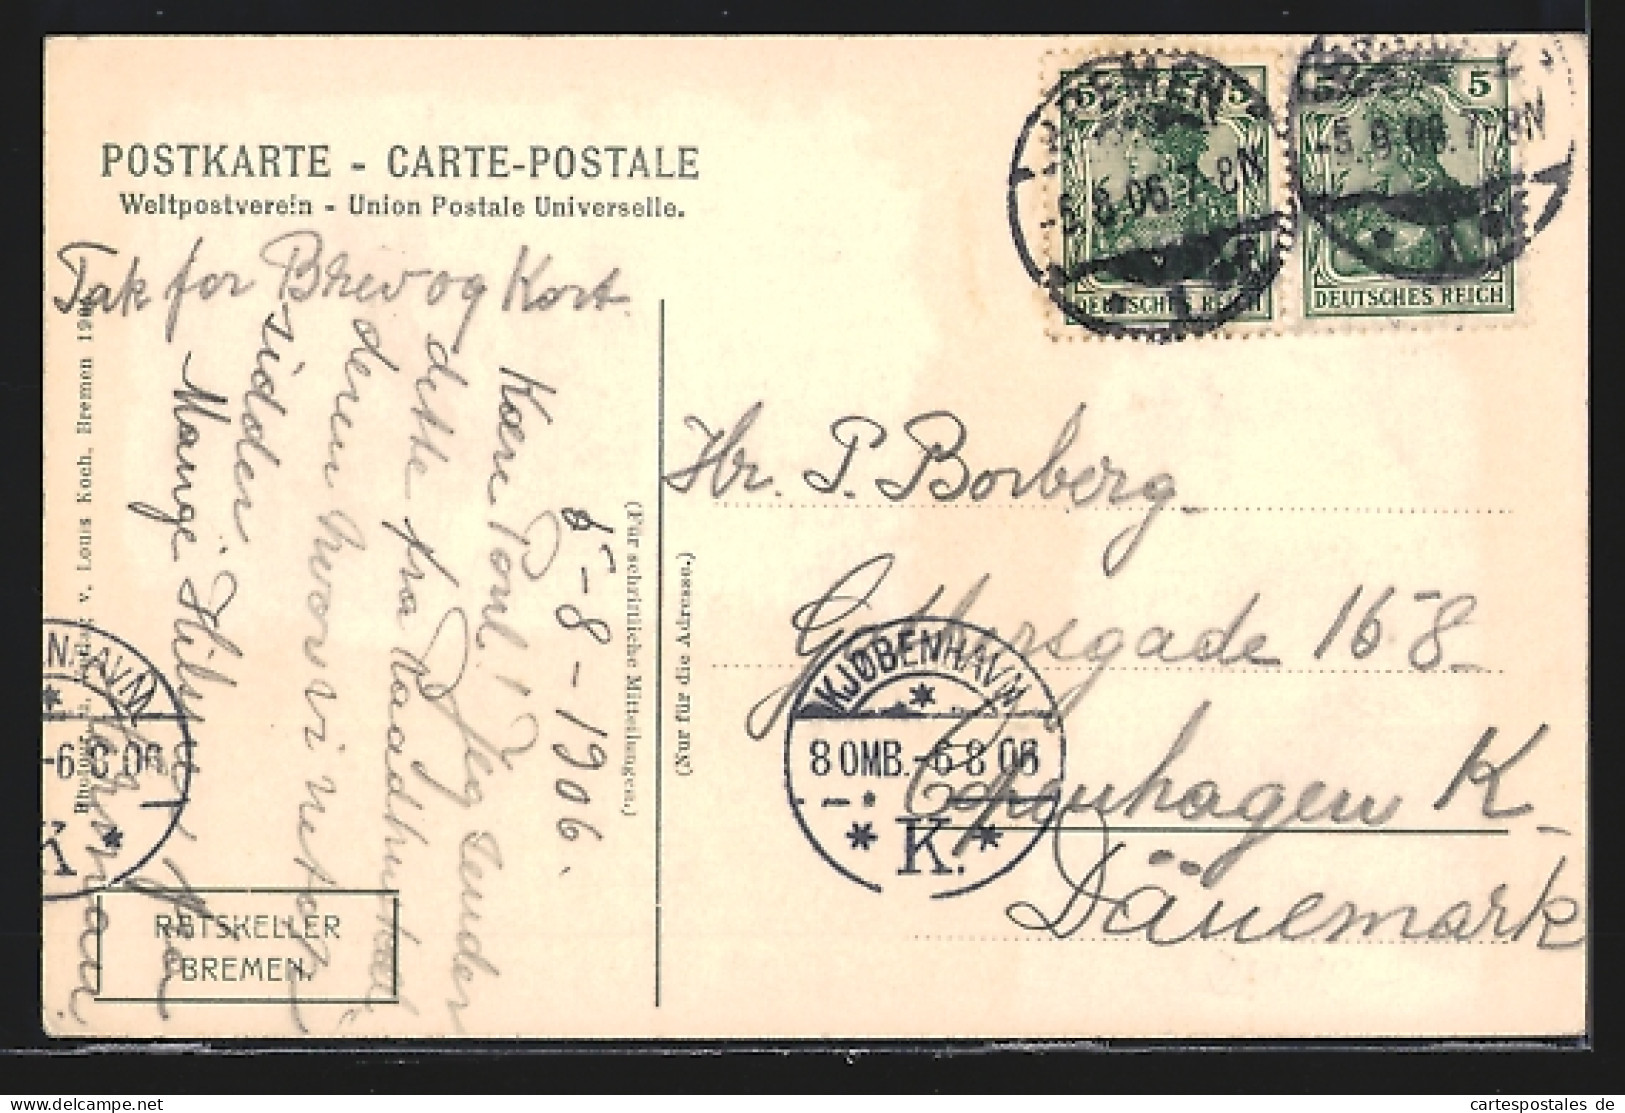 POSTKARTE - CARTE-POSTALE
Weltpostverein - Union Postale Universelle.
Tak for Brev og Kort.
5-8-1906.
Kære Poul!
Jeg sender
dette fra Raadhuskæl
deren hvor vi netop
sidder.
Mange Hilsner
v. Louis Koch, Bremen 190
RATSKELLER
BREMEN.
(Für schriftliche Mitteilungen.)
(Nur für die Adresse.)
BREMEN
-5.8.06.7-8N
1
DEUTSCHES REICH
5
-5.8.06.7-8N
1
DEUTSCHES REICH
Hr. P. Borberg.
Gothersgade 168
Copenhagen K.
Dänemark
KJØBENHAVN
8 OMB.-6 8 06
K.
NHAVN
-6 8 06
K
www.cartespostales.de